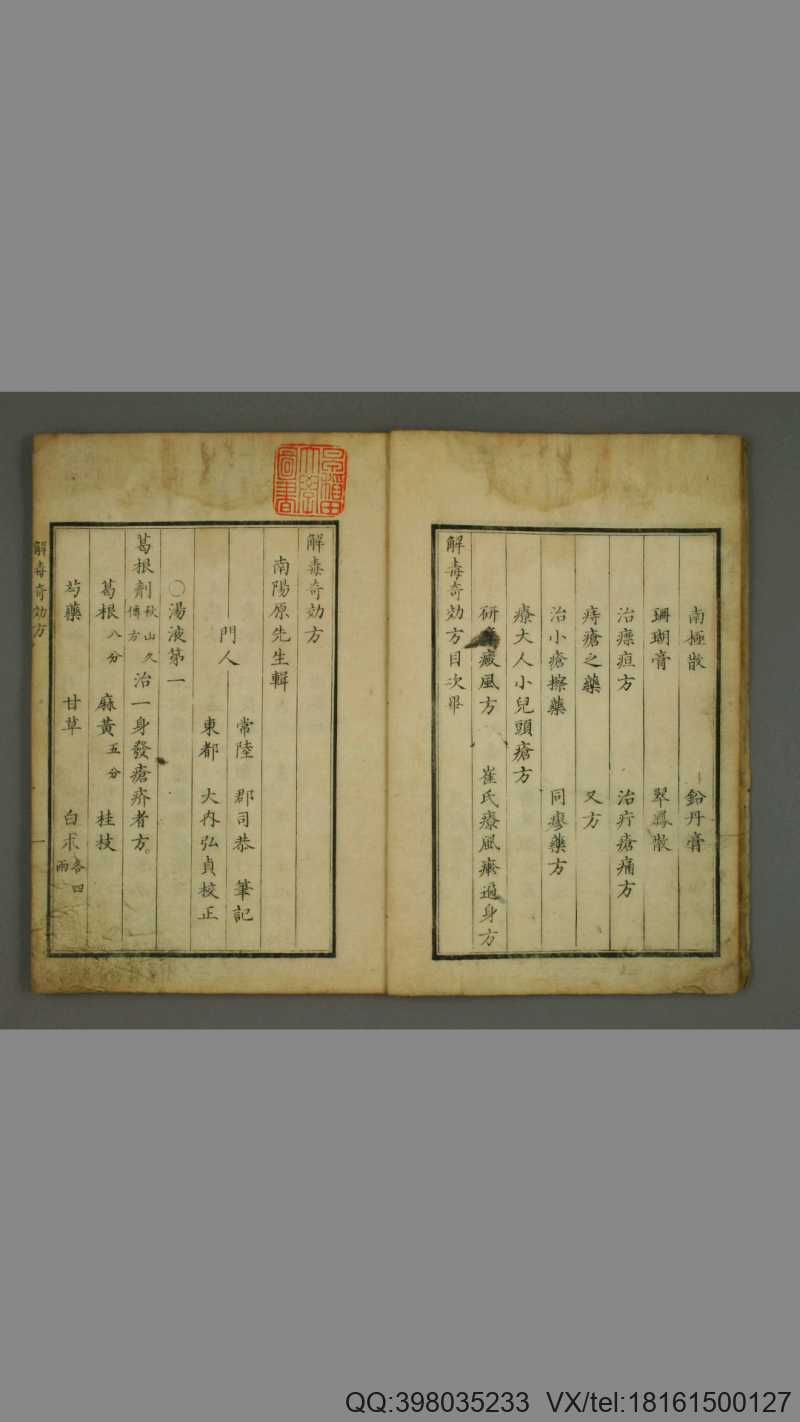 南極散　鉛丹膏
珊瑚膏　翠鳳散
治瘭疽方　治疔瘡痛方
痔瘡之藥　又方
治小瘡擦藥　同瘳藥方
療大人小兒頭瘡方
研　癜風方　崔氏療風瘮遍身方
解毒奇効方目次畢
解毒奇効方
南陽原先生輯
門人
常陸　郡司恭　筆記
東都　大內弘貞校正
○湯液第一
葛根劑秋山久傳方治一身發瘡疥者方。
葛根八分　麻黃五分　桂枝
芍藥　甘草　白朮各四兩
解毒奇効方
一
QQ:398035233 VX/tel:18161500127